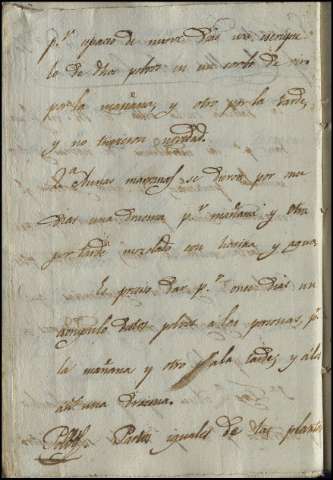 p.r espacio de nueve dias un escrupu
lo de dhos polvos en un cortad de vino
por la mañana, y otro por la tarde,
y no tuvieron novedad.
2.ª A unas marranas se dieron por nu
dias una dracma p.r mañana y otra
por tarde mezclado con harina y agua.
Es preciso dar p.r once dias un
escrupulo destos polvos a las personas, p.r
la mañana y otro a la tarde; y a los
una dracma.
Polvos. Partes iguales de las plantas